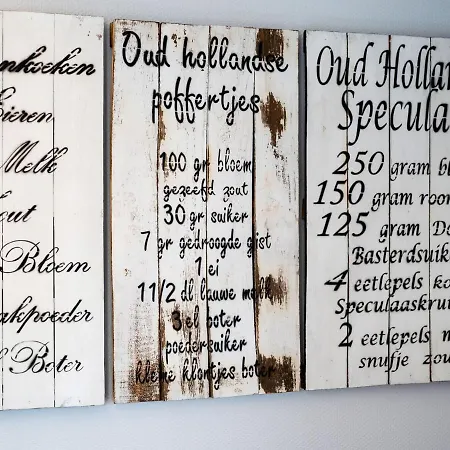 nkoeken
Eieren
Melk
out
Bloem
akpoeder
Boter
Oud hollandse
poffertjes
100 gr bloem
gezeefd zout
30 gr suiker
7 gr gedroogde gist
1 ei
11/2 dl lauwe melk
3 el boter
poedersuiker
kleine klontjes boter
Oud Hollan
Specula
250 gram bl
150 gram room
125 gram Do
Basterdsuik
4 eetlepels ko
Speculaaskrui
2 eetlepels m
snufje zou